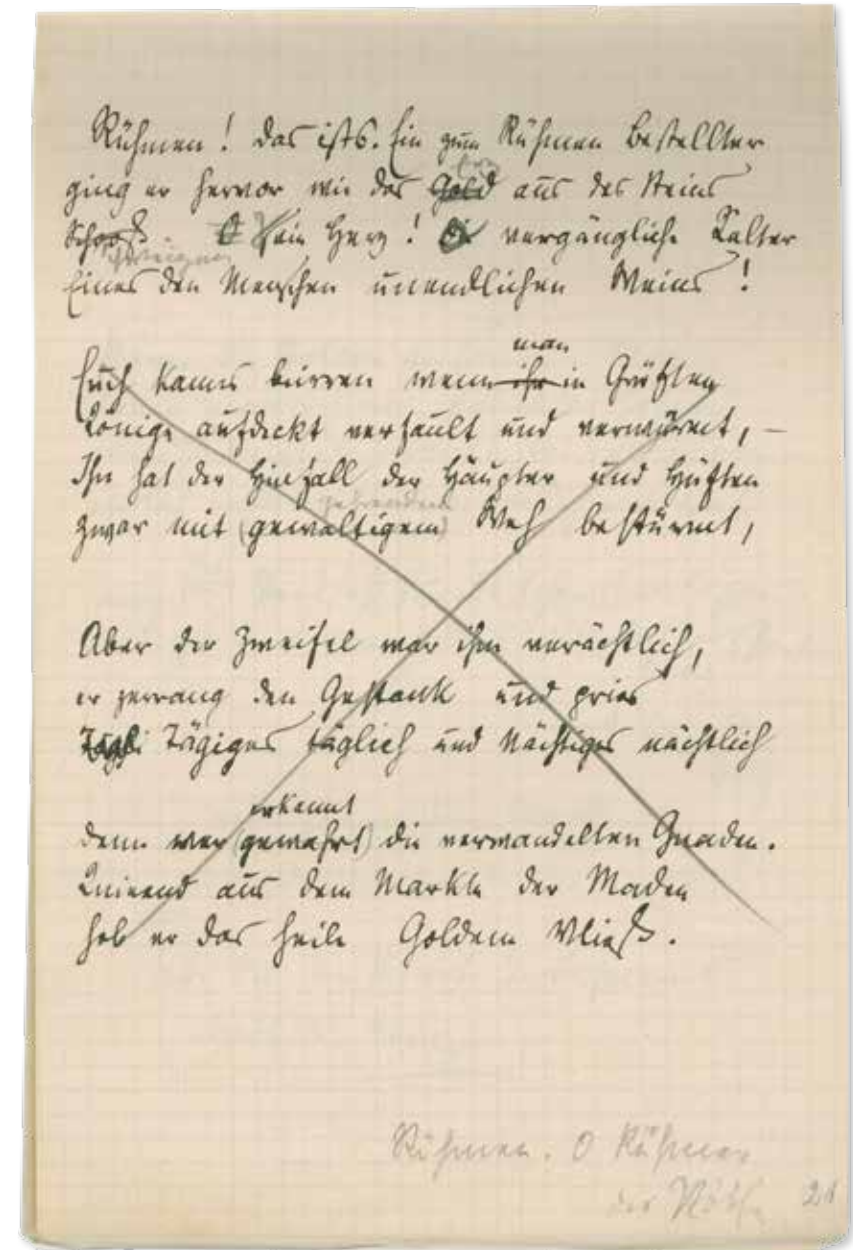 Rühmen! das ists. Ein zum Rühmen Bestellter
Erz
ging er hervor wie das Gold aus des Steins
Schooß. O Sein Herz! O vergängliche Kelter
Schweigen
Eines den Menschen unendlichen Weins!
man
Euch kanns beirren wenn ihr in Grüften
Könige aufdeckt verfault und verwürmt, –
Ihn hat der Hinfall der Häupter und Hüften
zehrendem
zwar mit (gewaltigem) Weh bestürmt,
Aber der Zweifel war ihm verächtlich,
er zerrang den Gestank und pries
Tägli Tägiges täglich und Nächtiges nächtlich
erkennt
denn wer (gewahrt) die verwandelten Gnaden.
Knieend aus dem Markte der Maden
hob er das heile Goldene Vließ.
Rühmen. O Rühmen
21